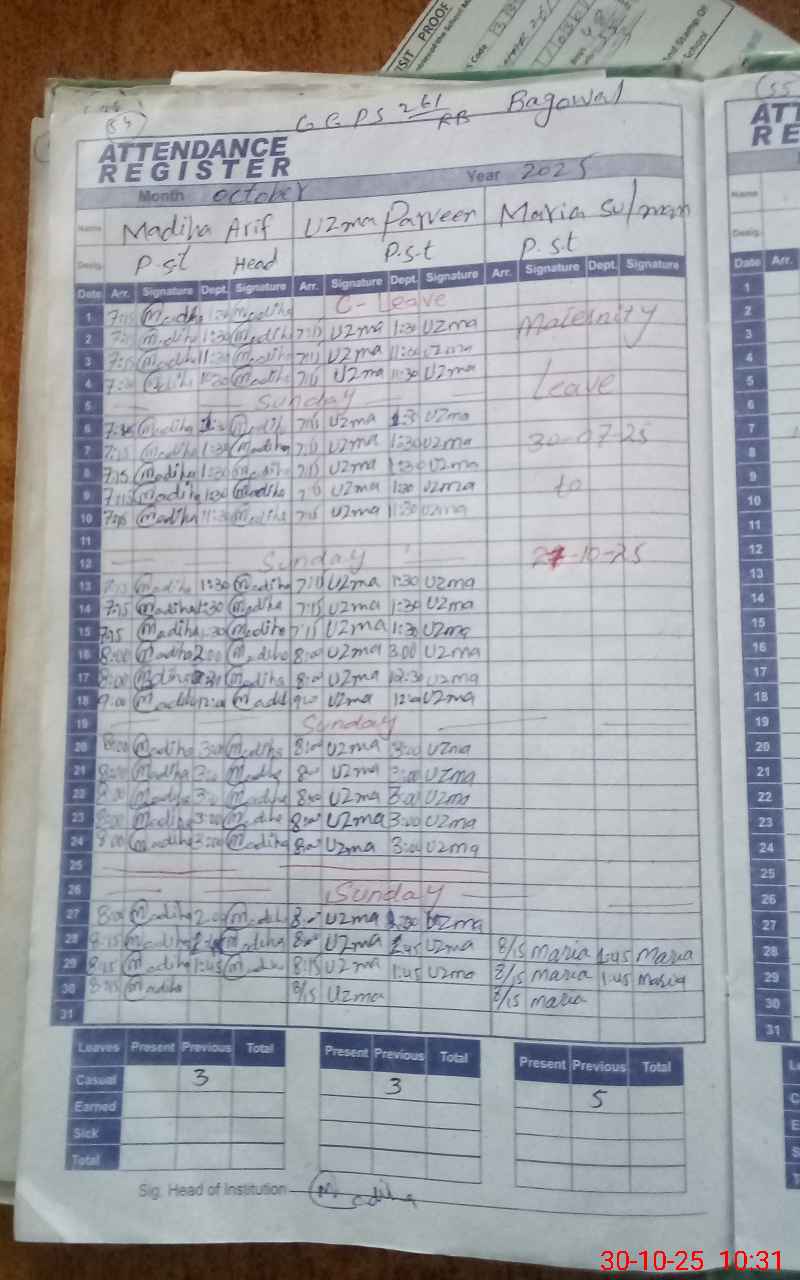 VISIT PROOF
Code
and Stamp Of
School
GGPS 261/RB Bagowal
ATTENDANCE
REGISTER
Month October Year 2025
Name Madiha Arif Uzma Parveen Maria Sulman
Desig. P.S.t Head P.S.t P.S.t
Date Arr. Signature Dept. Signature Arr. Signature Dept. Signature Arr. Signature Dept. Signature
1 7:15 Madiha 1:30 Madiha C-Leave
2 7:15 Madiha 1:30 Madiha 7:15 Uzma 1:30 Uzma Maternity
3 7:15 Madiha 11:30 Madiha 7:15 Uzma 11:00 Uzma
4 Madiha 11:30 Madiha 7:15 Uzma 11:30 Uzma Leave
5 Sunday
6 Madiha Madiha 7:15 Uzma 1:30 Uzma
7 7:15 Madiha 1:30 Madiha 7:15 Uzma 1:30 Uzma 30-07-25
8 7:15 Madiha 1:30 Madiha 7:15 Uzma 1:30 Uzma
9 7:15 Madiha 1:30 Madiha 7:15 Uzma 1:30 Uzma to
10 7:15 Madiha 11:30 Madiha 7:15 Uzma 11:30 Uzma
11
12 Sunday 27-10-25
13 7:15 Madiha 1:30 Madiha 7:15 Uzma 1:30 Uzma
14 7:15 Madiha 1:30 Madiha 7:15 Uzma 1:30 Uzma
15 7:15 Madiha 1:30 Madiha 7:15 Uzma 1:30 Uzma
16 8:00 Madiha 2:00 Madiha 8:00 Uzma 3:00 Uzma
17 8:00 Madiha Madiha 8:00 Uzma 12:30 Uzma
18 9:00 Madiha Madiha 9:00 Uzma 12:00 Uzma
19 Sunday
20 8:00 Madiha 3:00 Madiha 8:00 Uzma 3:00 Uzma
21 8:00 Madiha 3:00 Madiha 8:00 Uzma 3:00 Uzma
22 8:00 Madiha 3:00 Madiha 8:00 Uzma 3:00 Uzma
23 8:00 Madiha 3:00 Madiha 8:00 Uzma 3:00 Uzma
24 8:00 Madiha 3:00 Madiha 8:00 Uzma 3:00 Uzma
25
26 Sunday
27 8:00 Madiha 2:00 Madiha 8:00 Uzma Uzma
28 8:15 Madiha Madiha 8:00 Uzma 1:45 Uzma 8/15 Maria 1:45 Maria
29 8:15 Madiha 1:45 Madiha 8:15 Uzma 1:45 Uzma 8/15 Maria 1:45 Maria
30 8:15 Madiha 8/15 Uzma 8/15 Maria
31
Leaves Present Previous Total Present Previous Total Present Previous Total
Casual 3 3 5
Earned
Sick
Total
Sig. Head of Institution Madiha
Name
Desig.
Date Arr.
1
2
3
4
5
6
7
8
9
10
11
12
13
14
15
16
17
18
19
20
21
22
23
24
25
26
27
28
29
30
31
30-10-25 10:31